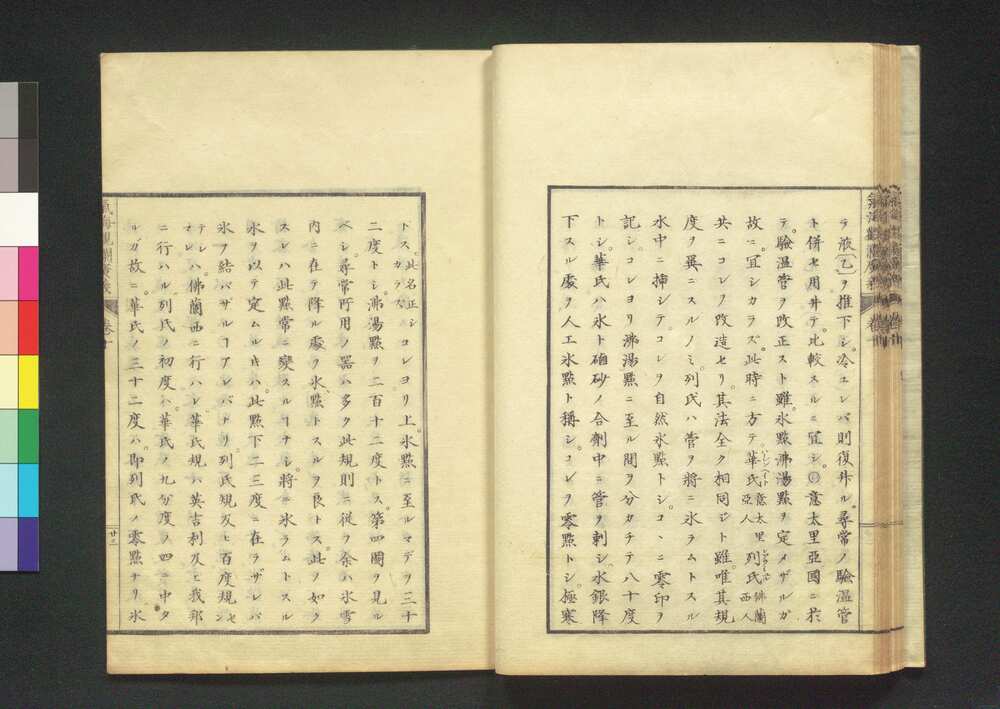 ラ液(乙)ヲ推下シ。冷ユレバ則復井ル。尋常ノ驗温管
ト併セ用井テ。比較スルニ宜シ。〇意太里亞國ニ於
テ。驗温管ヲ改正スト雖。氷點沸湯點ヲ定メザルガ
故ニ。宜シカラズ。此時ニ方テ華氏意太里亞人列氏佛蘭西人
共ニコレヲ改造セリ。其法全ク相同ジト雖。唯其規
度ヲ異ニスルノミ。列氏ハ管ヲ將ニ氷ラムトスル
水中ニ挿シテ。コレヲ自然氷點トシ。コヽニ零印ヲ
記シ。コレヨリ沸湯點ニ至ル間ヲ分カチテ八十度
トシ。華氏ハ氷ト磠砂ノ合劑中ニ管ヲ刺シ。水銀降
下スル處ヲ人工氷點ト稱シ。コレヲ零點トシ。極寒
トス。此名正シカラズコレヨリ上。氷點ニ至ルマデヲ三十
二度トシ。沸湯點ヲ二百十二度トス。第四圖ヲ見ル
ベシ。尋常所用ノ器ハ多ク此規則ニ從フ。余ハ氷雪
内ニ在テ降ル處ヲ氷點トスルヲ良トス。此ノ如ク
スレハ此點常ニ變スルヿナシ。將ニ氷ラムトスル
水ヲ以テ定ムル𪜈ハ。此點下二三度ニ在ラザレバ
氷ヲ結バザルヿアレバナリ。列氏規及ヒ百度規センテシマレハ。佛蘭西ニ行ハレ。華氏規ハ英吉利及ヒ我邦
ニ行ハル。列氏ノ初度ハ。華氏ノ九分度ノ四ニ中タ
ルガ故ニ。華氏ノ三十二度ハ。即列氏ノ零點ナリ。氷
氣海觀瀾廣義
卷十
廿三